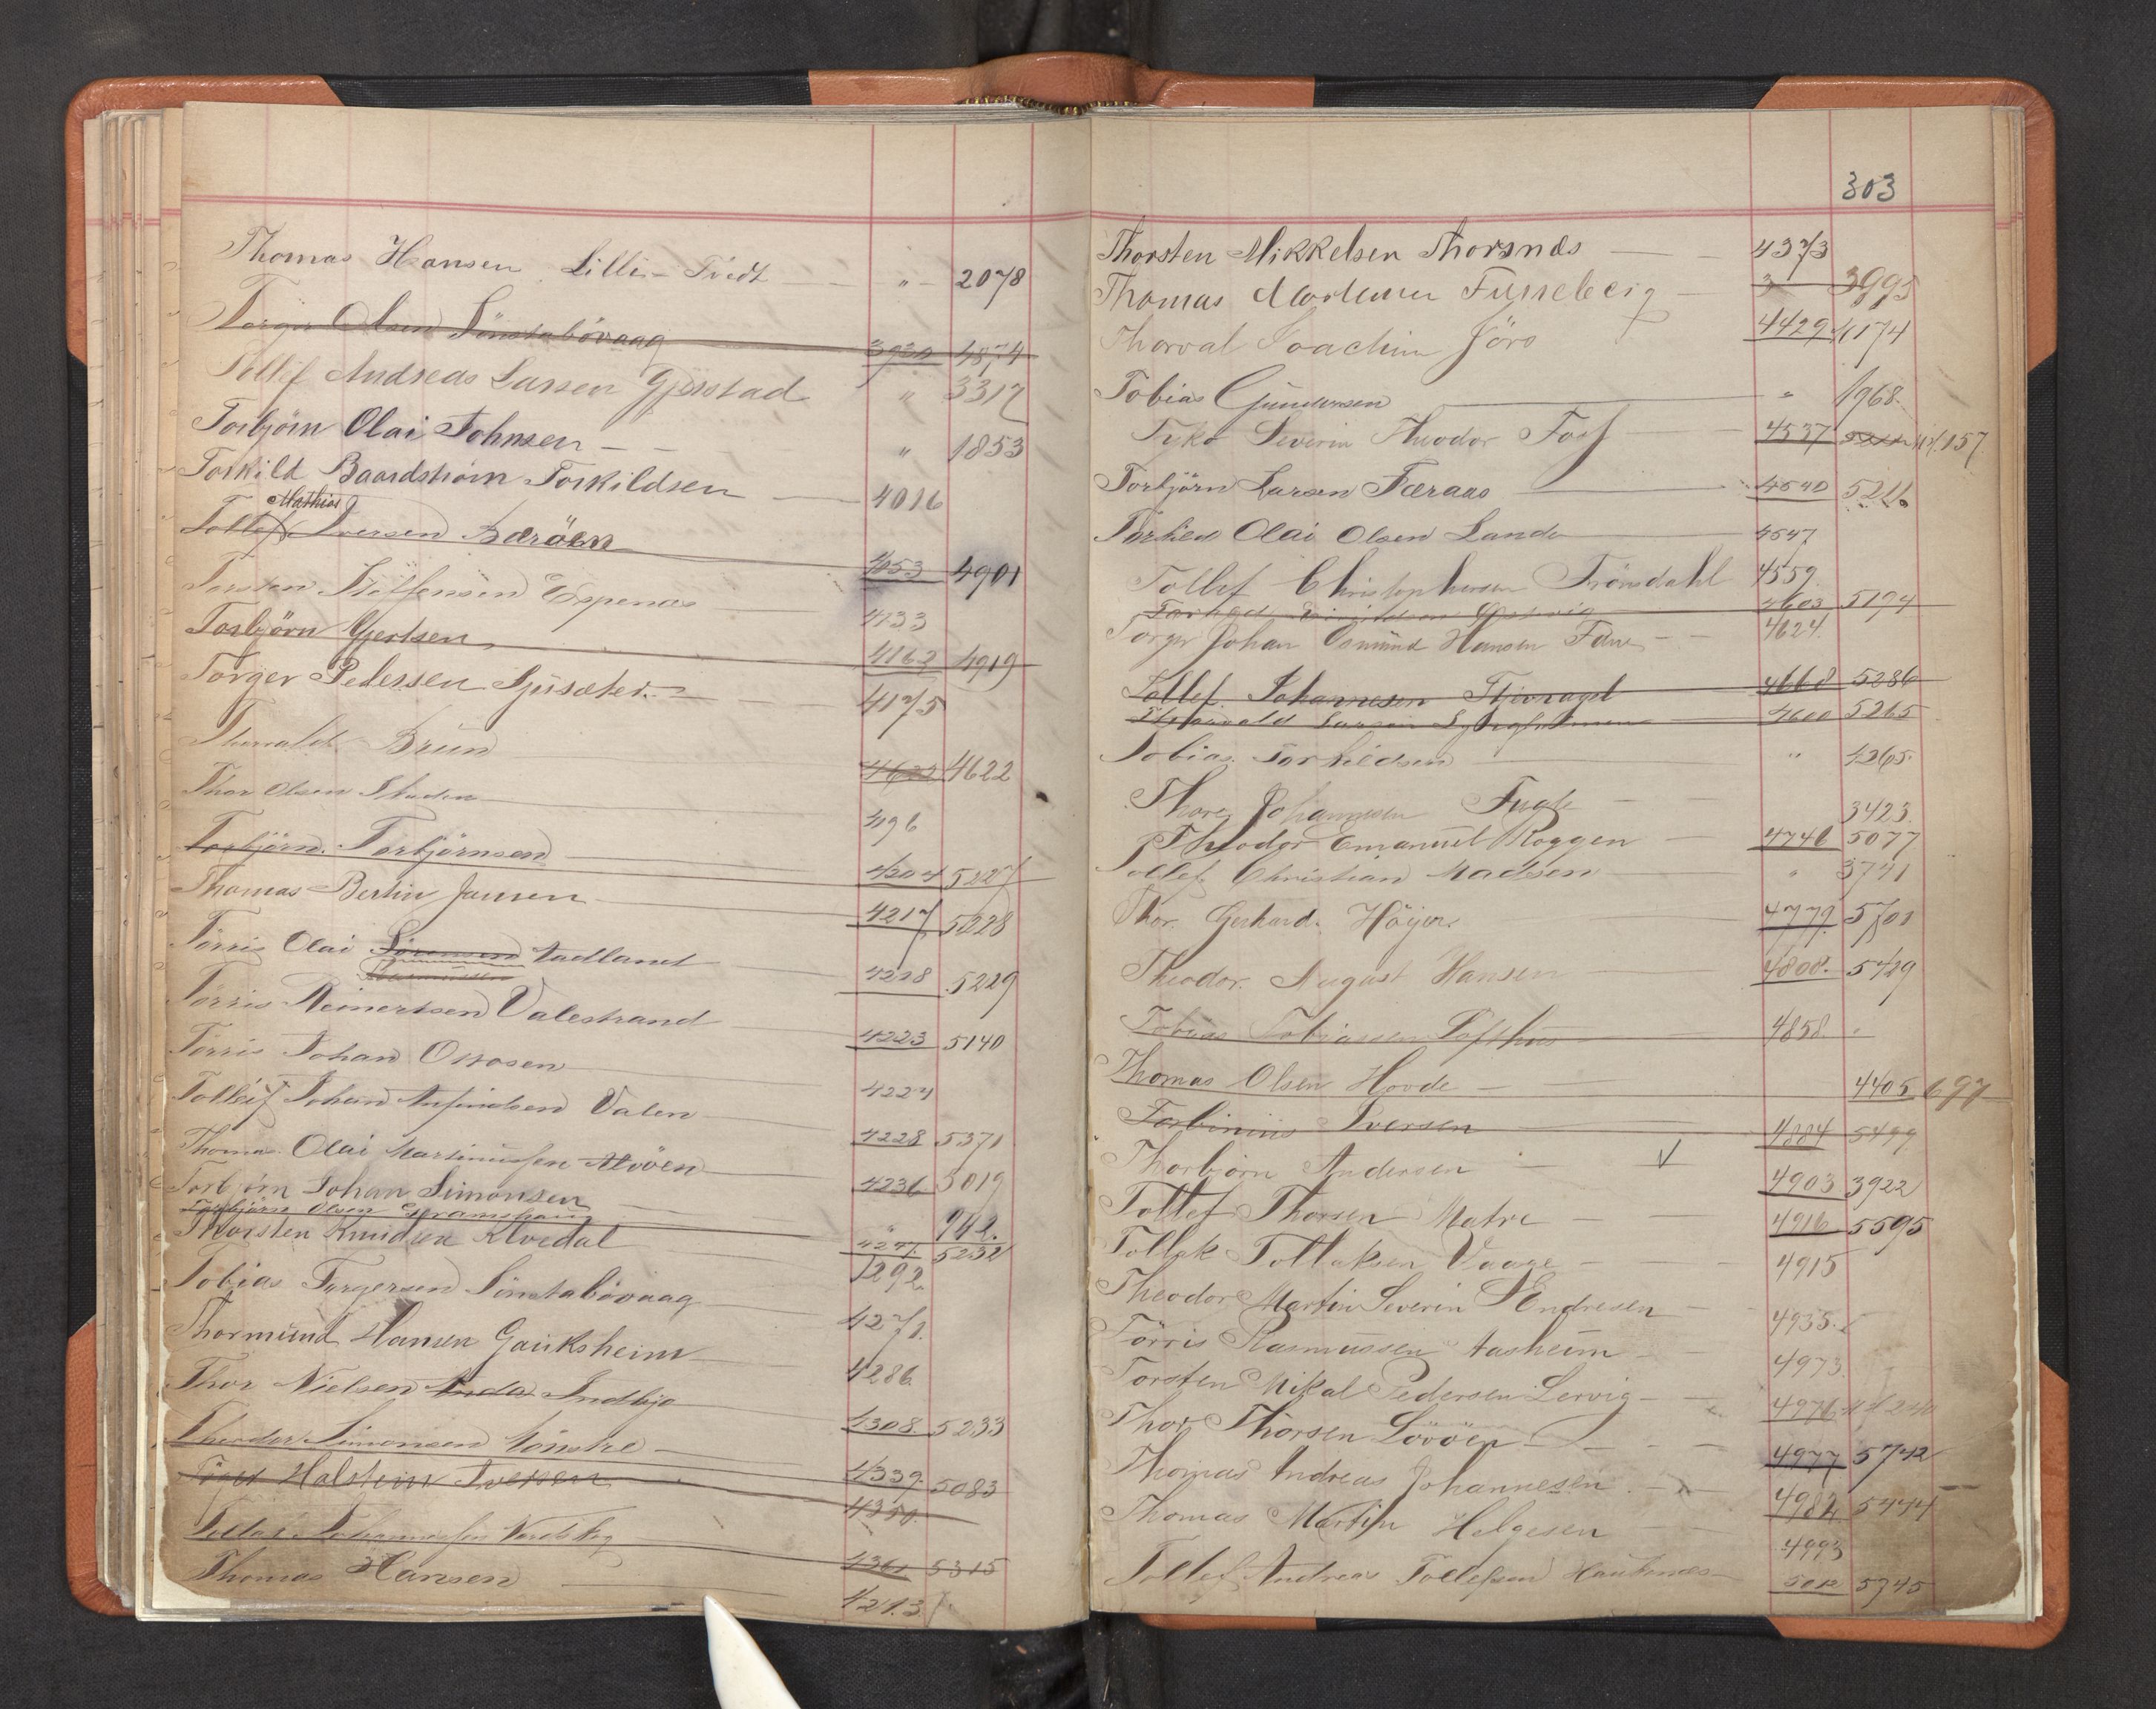 Thomas Hansen Lilli-Tvedt " 2078
Torger Olsen Simstabövaag 3920 4874
Tollif Andreas Larsen Gjerstad " 3317
Torbjörn Olai Johnsen " 1853
Torkild Baardströrn Torkildsen 4016
Mathias
Tollef Iversen Bæröen 4053 4901
Torsten Steffensen Espenæs 4133
Torbjörn Gjertsen 4162 4919
Torger Pedersen Sjusæter 4175
Thorvald Brun 4622 4622
Thor Olsen 4196
Torbjörn Torbjörnsen 4204 5227
Thomas Bertin Jansen 4217 5228
Törris Olai Sörensen Aadland 4218 5229
Rasmussen
Törris Reinertsen Valestrand 4223 5140
Törris Johan Ottosen 4224
Tolleif Johan Anfindsen Valen 4228 5371
Thomas Olai Martinussen Alvöen 4236 3019
Torbjörn Johan Simonsen " 942.
Torbjörn Olsen 5232
Thorsten Knudsen Klvedal 4292
Tobias Torgersen Simstabövaag 4271.
Thormund Hansen Gauksheim 4286
Thor Nielsen Inda Indbjo 4308. 5233
Theodor Simonsen Mönstre 4339. 5083
Töger Holstein Iversen 4350.
Johannessen 4361 5315
Thomas Hansen 4213
303
Thorsten Mikkelsen Thorsnæs 4373
Thomas Martinus 3993
Thorval Joachim Jöro 4429 4174
Tobias Gundersen " 1968.
Tyko Severin Theodor Foss 4537 157
Torbjörn Larsen Færaas 4540 5216
Torkel Olai Olsen Lande 4547
Tollef Christophersen Frönsdahl 4559.
4603 5194
Torger Johan Osmund Hansen Fane 4624.
Tollef Johannesen Stivnagel 4668 5286
Thorvald Larsen 5265
Tobias Torkildsen " 1265.
Thore Johannesen Fugle 3423.
Theodor Emanuel Roggen 4746 5077
Tollef Christian Madsen " 3741
Thor Gerhard Höyer 4779. 5701
Theodor August Hansen 4808. 5429
Tobias Tobiassen Lofthus 4858. "
Thomas Olsen Hovde 4405 697
Torbinius Iversen 4884 5499
Thorbjörn Andersen V 4903 3922
Tollef Thorsen Matre 4916 5595
Tollak Tollaksen Vaage 4915
Theodor Martin Severin Endresen 4935.
Törris Rasmussen Aasheim 4973.
Torsten Mikal Pedersen Lervig 4976
Thor Thorsen Lövöen 4977 5742
Thomas Andreas Johannesen 4982 5444
Thomas Martin Helgesen 4993
Tollef Andreas Tollefsen Haukenæs 5012 5745